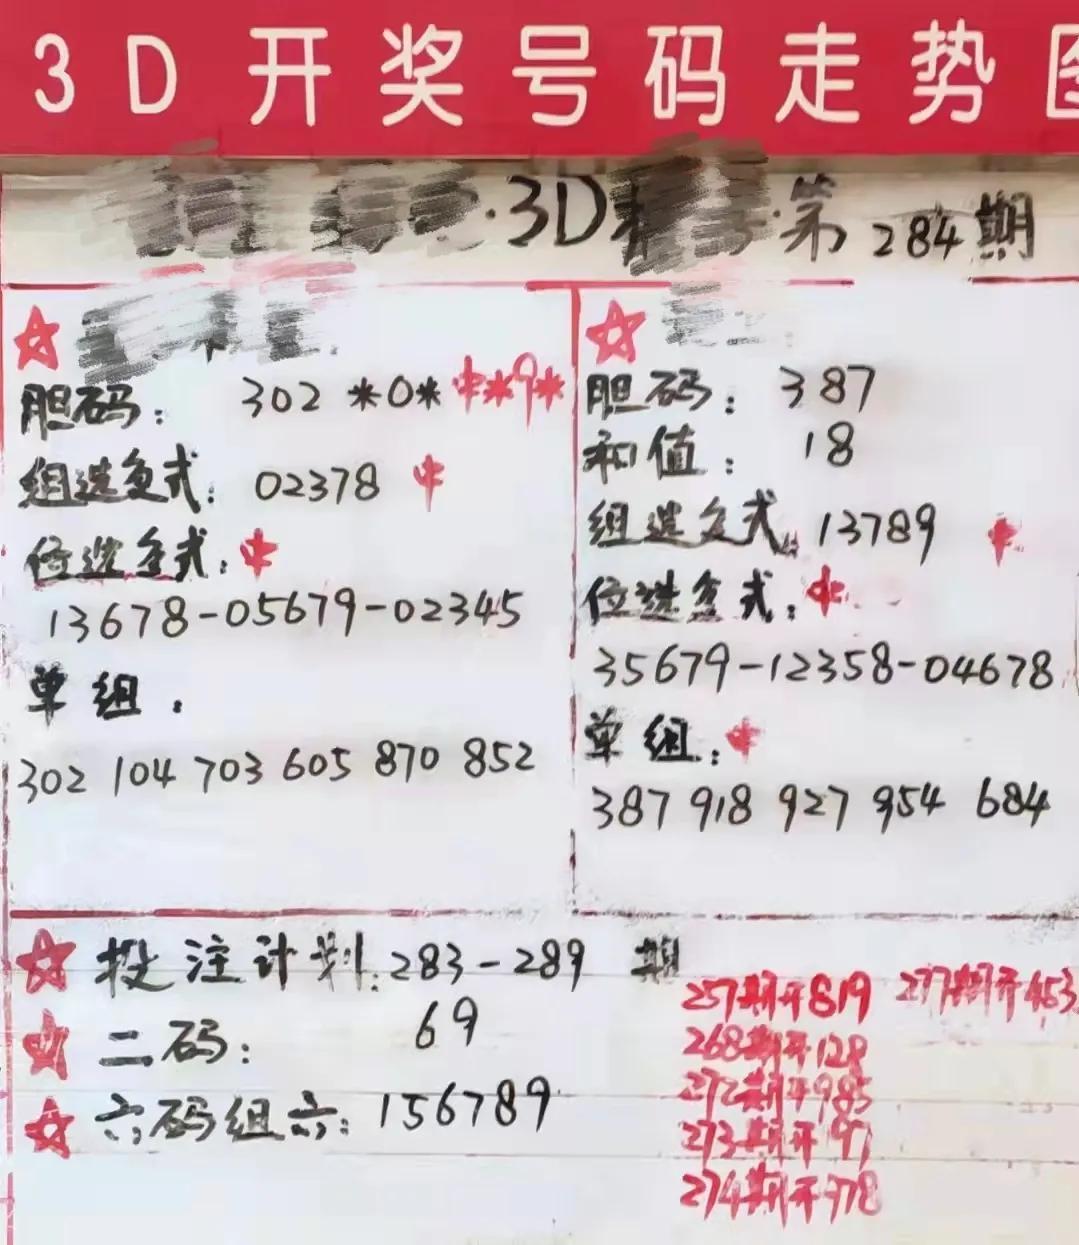 3D开奖号码走势图
·3D 第284期
胆码： 302 *0* 中*9*
组选复式：02378 中
位选复式：中
13678-05679-02345
单组：
302 104 703 605 870 852
胆码：387
和值：18
组选复式：13789 中
位选复式：中
35679-12358-04678
单组：中
387 918 927 954 684
投注计划：283-289 期
二码：69
六码组六：156789
257期开819 277期开453
268期开128
272期开985
273期开
274期开778